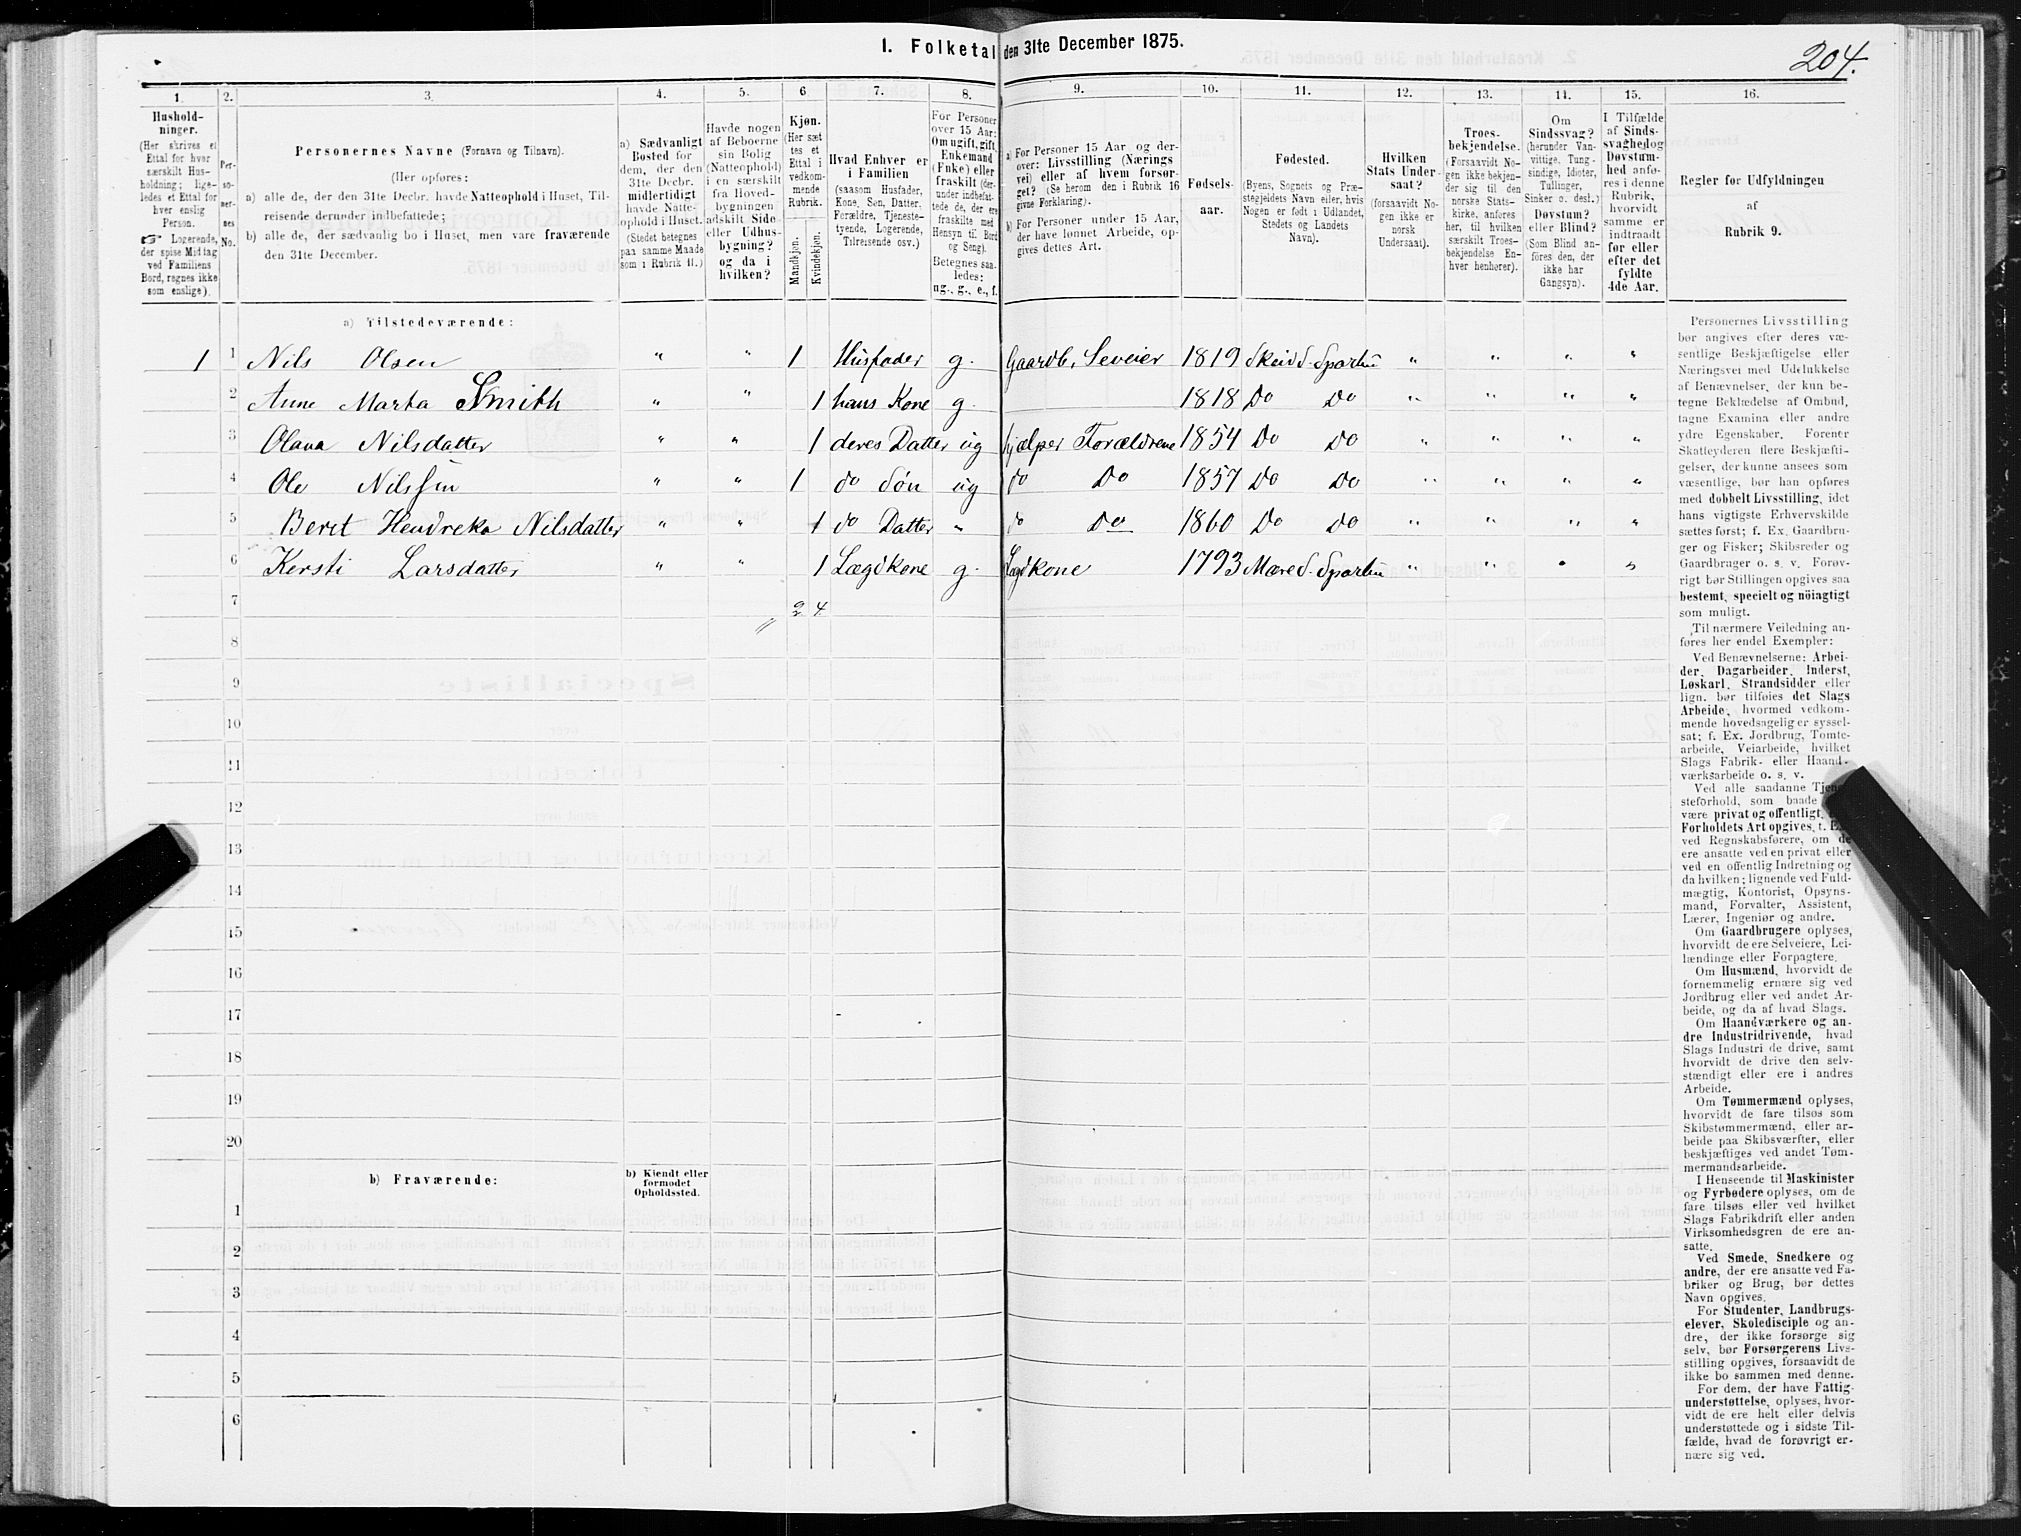 1. Folketal den 31te December 1875.
204.
1. 2. 3. 4. 5. 6. 7. 8. 9. 10. 11. 12. 13. 14. 15. 16.
Hushold-
ninger.
(Her skrives et
Ettal for hver
særskilt Hus-
holdning; lige-
ledes et Ettal for
hver enslig
Person.
☞ Logerende,
der spise Middag
ved Familiens
Bord, regnes ikke
som enslige).
Per-
so-
ner-
nes
No.
Personernes Navne (Fornavn og Tilnavn).
(Her opføres:
a) alle de, der den 31te Decbr. havde Natteophold i Huset, Til-
reisende derunder indbefattede;
b) alle de, der sædvanlig bo i Huset, men vare fraværende
den 31te December.
a) Sædvanligt
Bosted for
dem, der den
31te Decbr.
midlertidigt
havde Natte-
ophold i Huset.
(Stedet betegnes
paa samme Maade
som i Rubrik 11.)
Havde nogen
af Beboerne
sin Bolig
(Natteophold)
i en særskilt
fra Hoved-
bygningen
adskilt Side-
eller Udhus-
bygning?
og da i
hvilken?
Kjøn.
(Her sæt
tes et
Ettal i
vedkom-
mende
Rubrik.
Mandkjøn.
Kvindekjøn.
Hvad Enhver er
i Familien
(saasom Husfader,
Kone, Søn, Datter,
Forældre, Tjeneste-
tyende, Logerende,
Tilreisende osv.)
For Personer
over 15 Aar:
Om ugift, gift,
Enkemand
(Enke) eller
fraskilt (der-
under indbefat-
tede de, der ere
fraskilte med
Hensyn til Bord
og Seng).
Betegnes saa-
ledes:
ug., g., e., f.
a) For Personer 15 Aar og der-
over: Livsstilling (Nærings
vei) eller af hvem forsør-
get? (Se herom den i Rubrik 16
givne Forklaring).
b) For Personer under 15 Aar,
der have lønnet Arbeide, op-
gives dettes Art.
Fødsels-
aar.
Fødested.
(Byens, Sognets og Præ-
stegjeldets Navn eller, hvis
Nogen er født i Udlandet,
Stedets og Landets
Navn).
Hvilken
Stats Under-
saat?
(forsaavidt No-
gen ikke er
norsk
Undersaat).
Troes-
bekjendelse.
(Forsaavidt No-
gen ikke bekjen-
der sig til den
norske Stats-
kirke, anføres
her, til hvilken
særskilt Troes-
bekjendelse En-
hver henhører).
Om
Sindssvag?
(herunder Van-
vittige, Tung-
sindige, Idioter,
Tullinger,
Sinker o. desl.)
Døvstum?
eller Blind?
(Som Blind an-
føres den, der
ikke har
Gangsyn).
I Tilfælde
af Sinds-
svaghed og
Døvstum-
hed anfø-
res i denne
Rubrik,
hvorvidt
samme er
indtraadt
før eller
efter det
fyldte
4de Aar.
Regler for Udfyldningen
af
Rubrik 9.
a) Tilstedeværende:
1 1 Nils Olsen " " 1 Husfader g. Gaardb, Seveier 1819 Skeid S. Sparbu " " " "
2 Anne Marta Smith " " 1 hans Kone g. 1818 Do Do " " " "
3 Olana Nilsdatter " " 1 deres Datter ug hjælper Forældrene 1854 Do Do " " " "
4 Ole Nilssen " " 1 do Søn ug do Do 1857 Do Do " " " "
5 Beret Hendreka Nilsdatter " " 1 do Datter " do Do 1860 Do Do " " " "
6 Kersti Larsdatter " " 1 Lægdkone g. Lægdkone 1793 Mære S. Sparbu " " " "
7 2 4
8
9
10
11
12
13
14
15
16
17
18
19
20
b) Fraværende:
b) Kjendt eller
formodet
Opholdssted.
1
2
3
4
5
6
Personernes Livsstilling
bør angives efter deres væ-
sentlige Beskjæftigelse eller
Næringsvei med Udelukkelse
af Benævnelser, der kun be-
tegne Beklædelse af Ombud,
tagne Examina eller andre
ydre Egenskaber. Forener
Skatteyderen flere Beskjæfti-
gelser, der kunne ansees som
væsentlige, bør han opføres
med dobbelt Livsstilling, idet
hans vigtigste Erhvervskilde
sættes først; f. Ex. Gaardbru-
ger og Fisker; Skibsreder og
Gaardbruger o. s. v. Forøv-
rigt bør Stillingen opgives saa
bestemt, specielt og nöiagtigt
som muligt.
Til nærmere Veiledning an-
føres her endel Exempler:
Ved Benævnelserne: Arbei-
der, Dagarbeider, Inderst,
Løskarl, Strandsidder eller
lign. bør tilføies det Slags
Arbeide, hvormed vedkom-
mende hovedsagelig er syssel-
sat; f. Ex. Jordbrug, Tomte-
arbeide, Veiarbeide, hvilket
Slags Fabrik- eller Haand-
værksarbeide o. s. v.
Ved alle saadanne Tjene-
steforhold, som baade
være privat og offentligt,
Forholdets Art opgives, t. Ex.
ved Regnskabsførere, om de
ere ansatte ved en privat eller
ved en offentlig Indretning og
da hvilken; lignende ved Fuld-
mægtig, Kontorist, Opsyns-
mand, Forvalter, Assistent,
Lærer, Ingeniør og andre.
Om Gaardbrugere oplyses,
hvorvidt de ere Selveiere, Lei-
lændinge eller Forpagtere.
Om Husmænd, hvorvidt de
fornemmelig ernære sig ved
Jordbrug eller ved andet Ar-
beide, og da af hvad Slags.
Om Haandværkere og an-
dre Industridrivende, hvad
Slags Industri de drive, samt
hvorvidt de drive den selv-
stændigt eller ere i andres
Arbeide.
Om Tømmermænd oplyses,
hvorvidt de fare tilsøs som
Skibstømmermænd, eller ar-
beide paa Skibsværfter, eller
beskjæftiges ved andet Tøm-
mermandsarbeide.
I Henseende til Maskinister
og Fyrbødere oplyses, om de
fare tilsøs eller ved hvilket
Slags Fabrikdrift eller anden
Virksomhedsgren de ere an-
satte.
Ved Smede, Snedkere og
andre, der ere ansatte ved Fa-
briker og Brug, bør dettes
Navn opgives.
For Studenter, Landbrugs-
elever, Skoledisciple og an-
dre, der ikke forsørge sig
selv, bør Forsørgerens Livs-
stilling opgives, forsaavidt de
ikke bo sammen med denne.
For dem, der have Fattig-
understøttelse, oplyses, hvor-
vidt de ere helt eller delvis
understøttede og i sidste Til-
fælde, hvad de forøvrigt er-
nære sig ved.